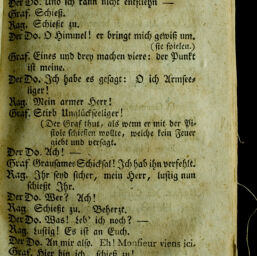 Der Do. Und ich kann nicht entfliehn —
Graf. Schieß.
Rag. Schießt zu.
Der Do. O Himmel! er bringt mich gewiß um.
(sie spielen.)
Graf. Eines und drey machen viere: der Punkt
ist meine.
Der Do. Ich habe es gesagt: O ich Armsee-
liger!
Rag. Mein armer Herr!
Graf. Stirb Unglückseeliger!
(Der Graf thut, als wenn er mit der Pi-
stole schießen wollte, welche kein Feuer
giebt und versagt.
Der Do. Ach! —
Graf. Grausames Schicksal! Ich hab ihn verfehlt.
Rag. Ihr seyd sicher, mein Herr, lustig nun
schießt Ihr.
Der Do. Wer? Ach!
Rag. Schießt zu. Beherzt.
Der Do. Was! Leb' ich noch? —
Rag. Lustig! Es ist an Euch.
Der Do. An mir also. Eh! Monsieur viens ici.
Graf. Hier bin ich, schieß zu!